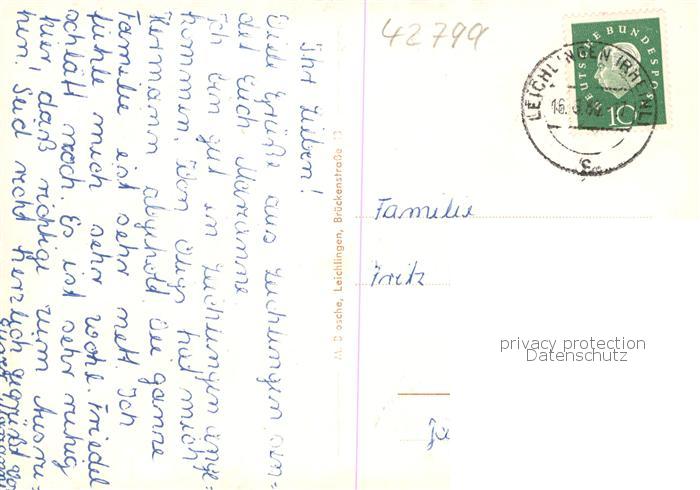 Ihr Lieben!
Viele Grüße aus Leichlingen sen=
det Euch Marianne.
Ich bin gut in Leichlingen ange=
kommen. Von hat mich
Hermann abgeholt. Die ganze
Familie ist sehr nett. Ich
fühle mich sehr wohl. Friedel
schläft noch. Es ist sehr ruhig
hier, daß richtige zum Ausru=
hen. Seid recht herzlich gegrüßt von
Eurer
M. Brosche, Leichlingen, Brückenstraße 13
42799
DEUTSCHE BUNDESPOST
10
LEICHLINGEN (RHEINL)
16.
Familie
Fritz
privacy protection
Datenschutz